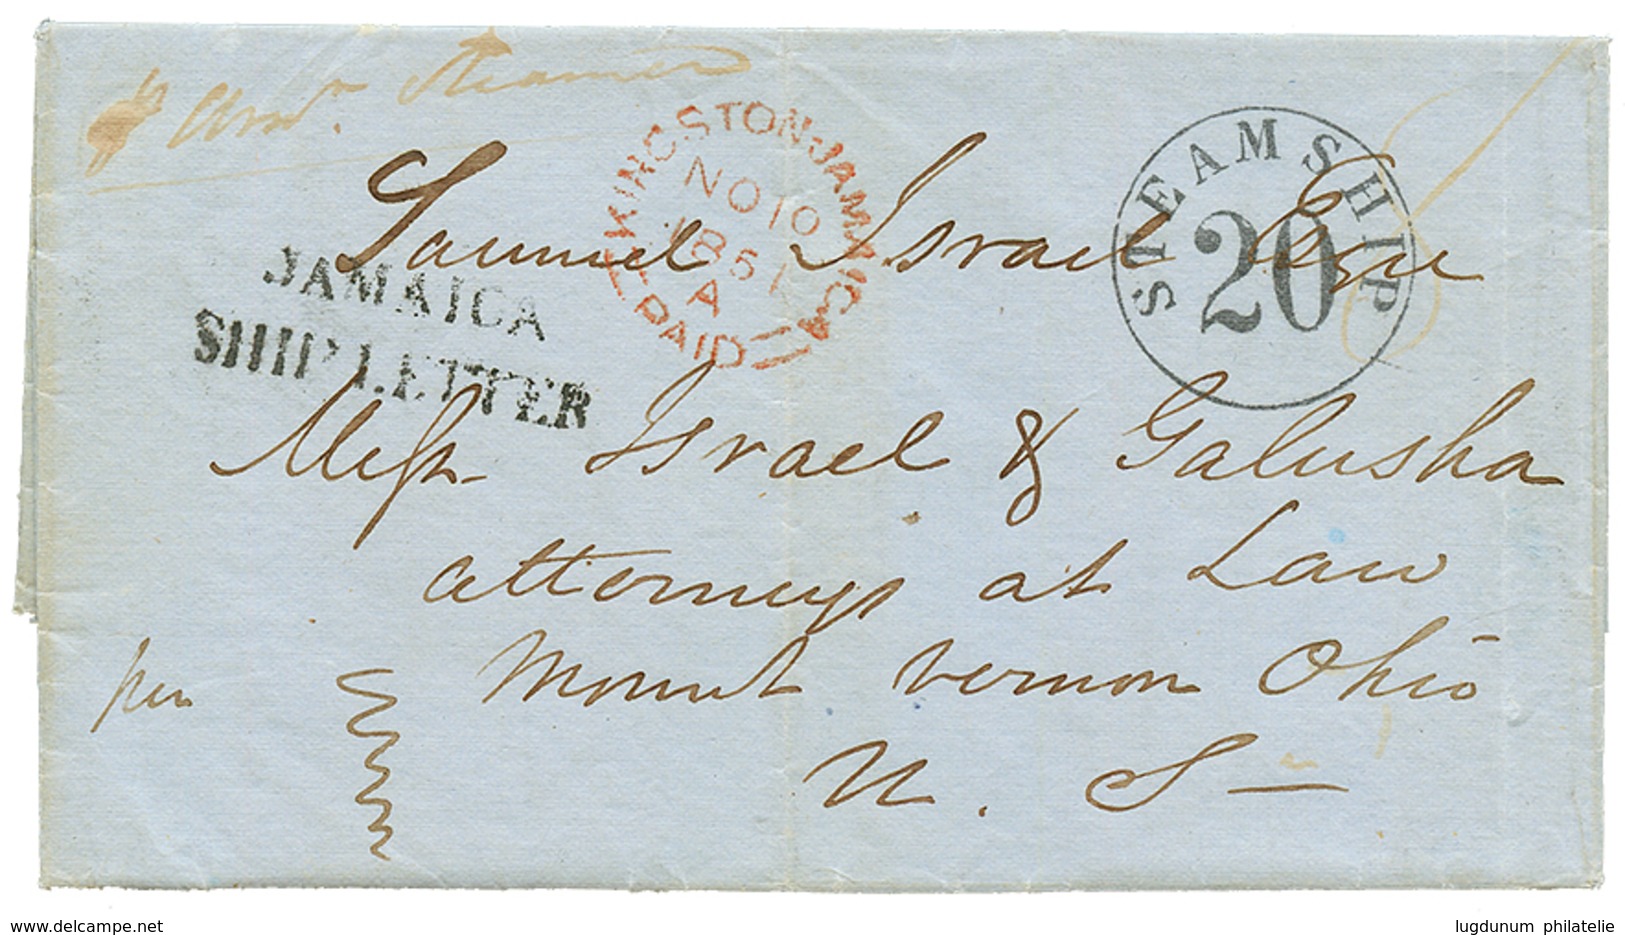 p Amn. Steamer
KINGSTON-JAMAICA
NO 10
1851
A
PAID
STEAM SHIP
20
JAMAICA
SHIP LETTER
Samuel Israel Esqu
Messr Israel & Galusha
attorneys at Law
per
Mount Vernon Ohio
U. S
delcampe.net
lugdunum philatelie